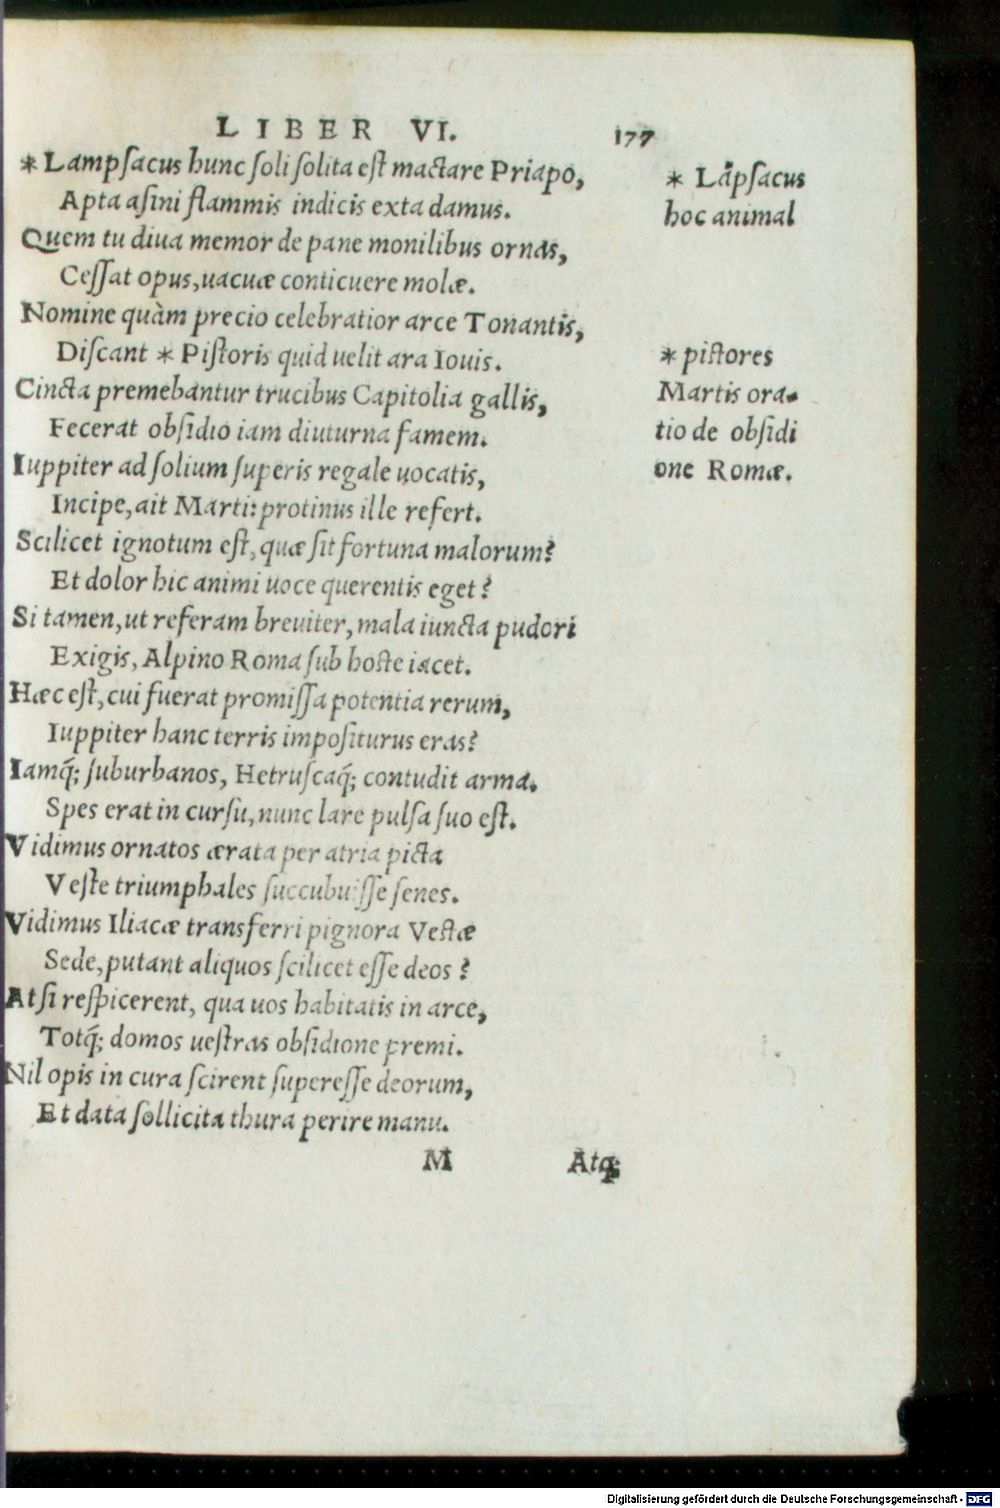 LIBER VI. 177
*Lampſacus hunc ſoli ſolita eſt mactare Priapo,
Apta aſini flammis indicis exta damus.
Quem tu diua memor de pane monilibus ornas,
Ceſſat opus, uacuæ conticuere molæ.
Nomine quàm precio celebratior arce Tonantis,
Diſcant * Piſtoris quid uelit ara Iouis.
Cincta premebantur trucibus Capitolia gallis,
Fecerat obſidio iam diuturna famem.
Iuppiter ad ſolium ſuperis regale uocatis,
Incipe, ait Marti: protinus ille refert.
Scilicet ignotum eſt, quæ ſit fortuna malorum?
Et dolor hic animi uoce querentis eget?
Si tamen, ut referam breuiter, mala iuncta pudori
Exigis, Alpino Roma ſub hoſte iacet.
Hæc eſt, cui fuerat promiſſa potentia rerum,
Iuppiter hanc terris impoſiturus eras?
Iamq́; ſuburbanos, Hetruſcaq́; contudit arma.
Spes erat in curſu, nunc lare pulſa ſuo eſt.
Vidimus ornatos ærata per atria picta
Veſte triumphales ſuccubuiſſe ſenes.
Vidimus Iliacæ transferri pignora Veſtæ
Sede, putant aliquos ſcilicet eſſe deos?
At ſi reſpicerent, qua uos habitatis in arce,
Totq́; domos ueſtras obſidione premi.
Nil opis in cura ſcirent ſupereſſe deorum,
Et data ſollicita thura perire manu.
M Atq;
* Lāpſacus
hoc animal
* piſtores
Martis ora-
tio de obſidi
one Romæ.
Digitalisierung gefördert durch die Deutsche Forschungsgemeinschaft - DFG